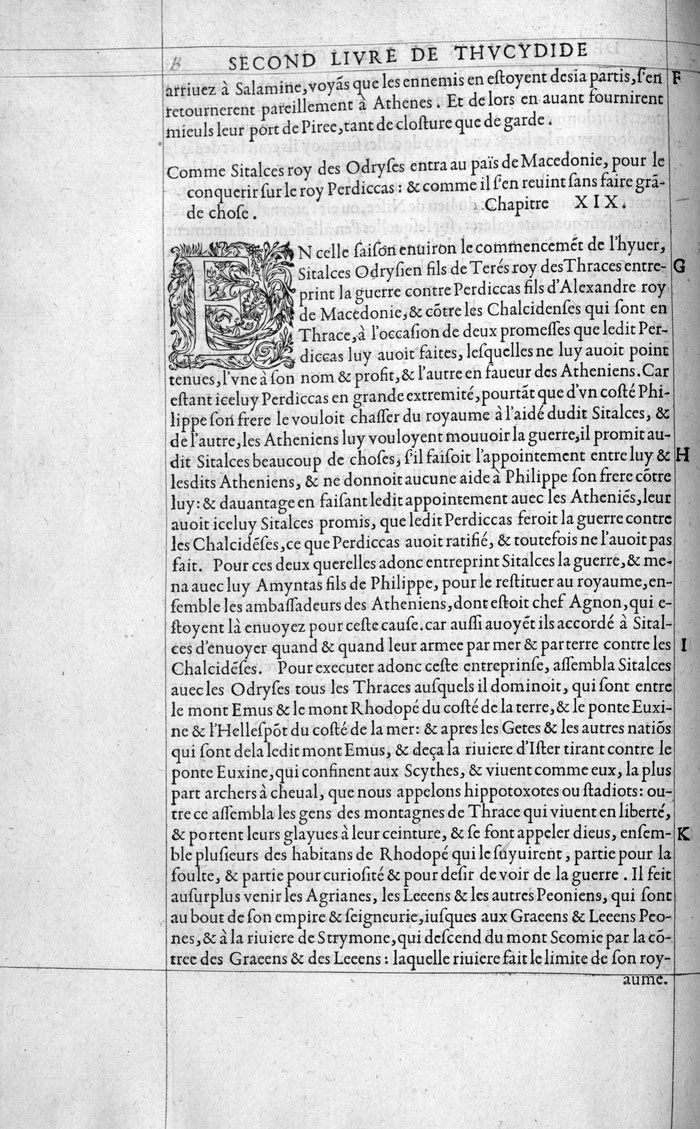 B SECOND LIVRE DE THVCYDIDE
arriuez à Salamine, voyãs que les ennemis en eſtoyent desia partis, ſ'en F
retournerent pareillement à Athenes. Et de lors en auant fournirent
mieuls leur port de Piree, tant de cloſture que de garde.
Comme Sitalces roy des Odryſes entra au païs de Macedonie, pour le
conquerir ſur le roy Perdiccas: & comme il ſ'en reuint ſans faire grã-
de choſe. Chapitre XIX.
EN celle ſaiſon enuiron le commencemẽt de l'hyuer,
Sitalces Odryſien fils de Terés roy des Thraces entre- G
print la guerre contre Perdiccas fils d'Alexandre roy
de Macedonie, & cõtre les Chalcidenſes qui ſont en
Thrace, à l'occaſion de deux promeſſes que ledit Per-
diccas luy auoit faites, leſquelles ne luy auoit point
tenues, l'vne à ſon nom & profit, & l'autre en faueur des Atheniens. Car
eſtant iceluy Perdiccas en grande extremité, pourtãt que d'vn coſté Phi-
lippe ſon frere le vouloit chaſſer du royaume à l'aide dudit Sitalces, &
de l'autre, les Atheniens luy vouloyent mouuoir la guerre, il promit au-
dit Sitalces beaucoup de choſes, ſ'il faiſoit l'appointement entre luy & H
leſdits Atheniens, & ne donnoit aucune aide à Philippe ſon frere cõtre
luy: & dauantage en faiſant ledit appointement auec les Atheniẽs, leur
auoit iceluy Sitalces promis, que ledit Perdiccas feroit la guerre contre
les Chalcidẽſes, ce que Perdiccas auoit ratifié, & toutefois ne l'auoit pas
fait. Pour ces deux querelles adonc entreprint Sitalces la guerre, & me-
na auec luy Amyntas fils de Philippe, pour le reſtituer au royaume, en-
ſemble les ambaſſadeurs des Atheniens, dont eſtoit chef Agnon, qui e-
ſtoyent là enuoyez pour ceſte cauſe. car auſſi auoyẽt ils accordé à Sital-
ces d'enuoyer quand & quand leur armee par mer & par terre contre les I
Chalcidẽſes. Pour executer adonc ceſte entreprinſe, aſſembla Sitalces
auec les Odryſes tous les Thraces auſquels il dominoit, qui ſont entre
le mont Emus & le mont Rhodopé du coſté de la terre, & le ponte Euxi-
ne & l'Helleſpõt du coſté de la mer: & apres les Getes & les autres natiõs
qui ſont dela ledit mont Emus, & deça la riuiere d'Iſter tirant contre le
ponte Euxine, qui confinent aux Scythes, & viuent comme eux, la plus
part archers à cheual, que nous appelons hippotoxotes ou ſtadiots: ou-
tre ce aſſembla les gens des montagnes de Thrace qui viuent en liberté,
& portent leurs glayues à leur ceinture, & ſe font appeler dieus, enſem- K
ble pluſieurs des habitans de Rhodopé qui le ſuyuirent, partie pour la
ſoulte, & partie pour curioſité & pour deſir de voir de la guerre. Il feit
auſurplus venir les Agrianes, les Leeens & les autres Peoniens, qui ſont
au bout de ſon empire & ſeigneurie, iuſques aux Graeens & Leeens Peo-
nes, & à la riuiere de Strymone, qui deſcend du mont Scomie par la cõ-
tree des Graeens & des Leeens: laquelle riuiere fait le limite de ſon roy-
aume.